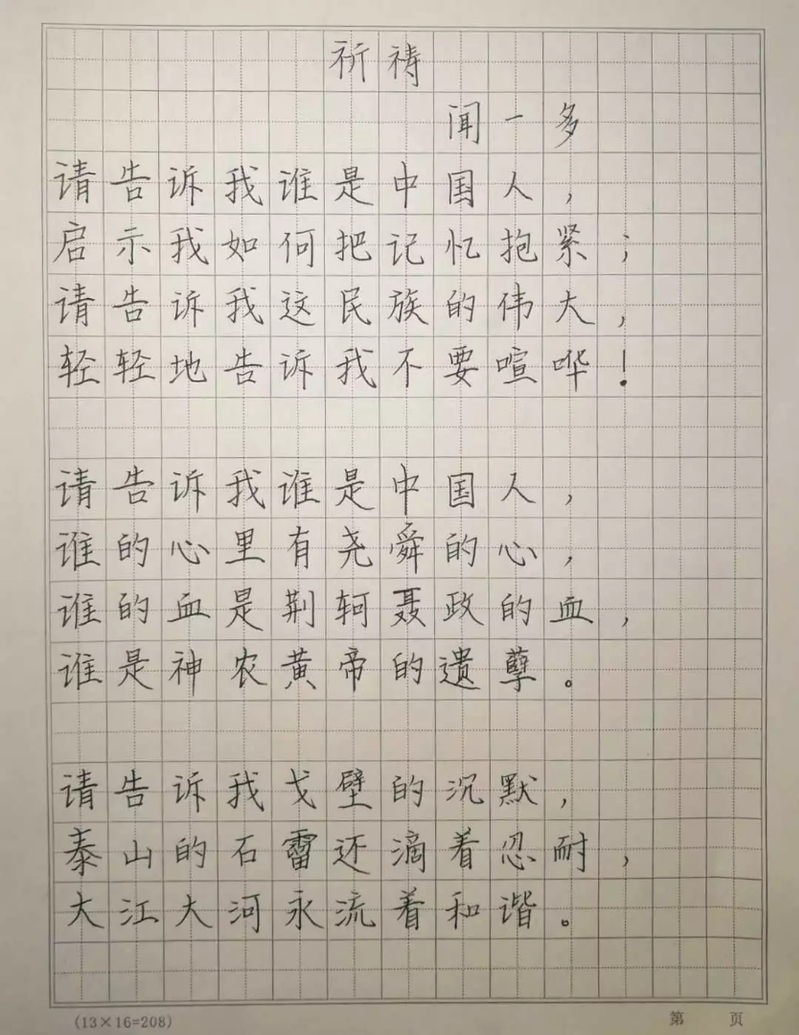 祈祷
闻一多
请告诉我谁是中国人，
启示我如何把记忆抱紧；
请告诉我这民族的伟大，
轻轻地告诉我不要喧哗！
请告诉我谁是中国人，
谁的心里有尧舜的心，
谁的血是荆轲聂政的血，
谁是神农黄帝的遗孽。
请告诉我戈壁的沉默，
泰山的石霤还滴着忍耐，
大江大河永流着和谐。
(13×16=208)
第 页